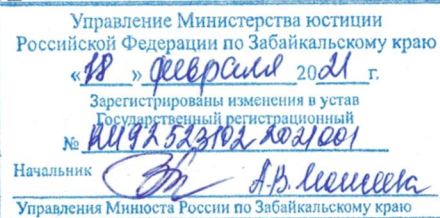 Управление Министерства юстиции
Российской Федерации по Забайкальскому краю
«18» февраля 2021 г.
Зарегистрированы изменения в устав
Государственный регистрационный
№ RU925231022021001
Начальник
Управления Минюста России по Забайкальскому краю